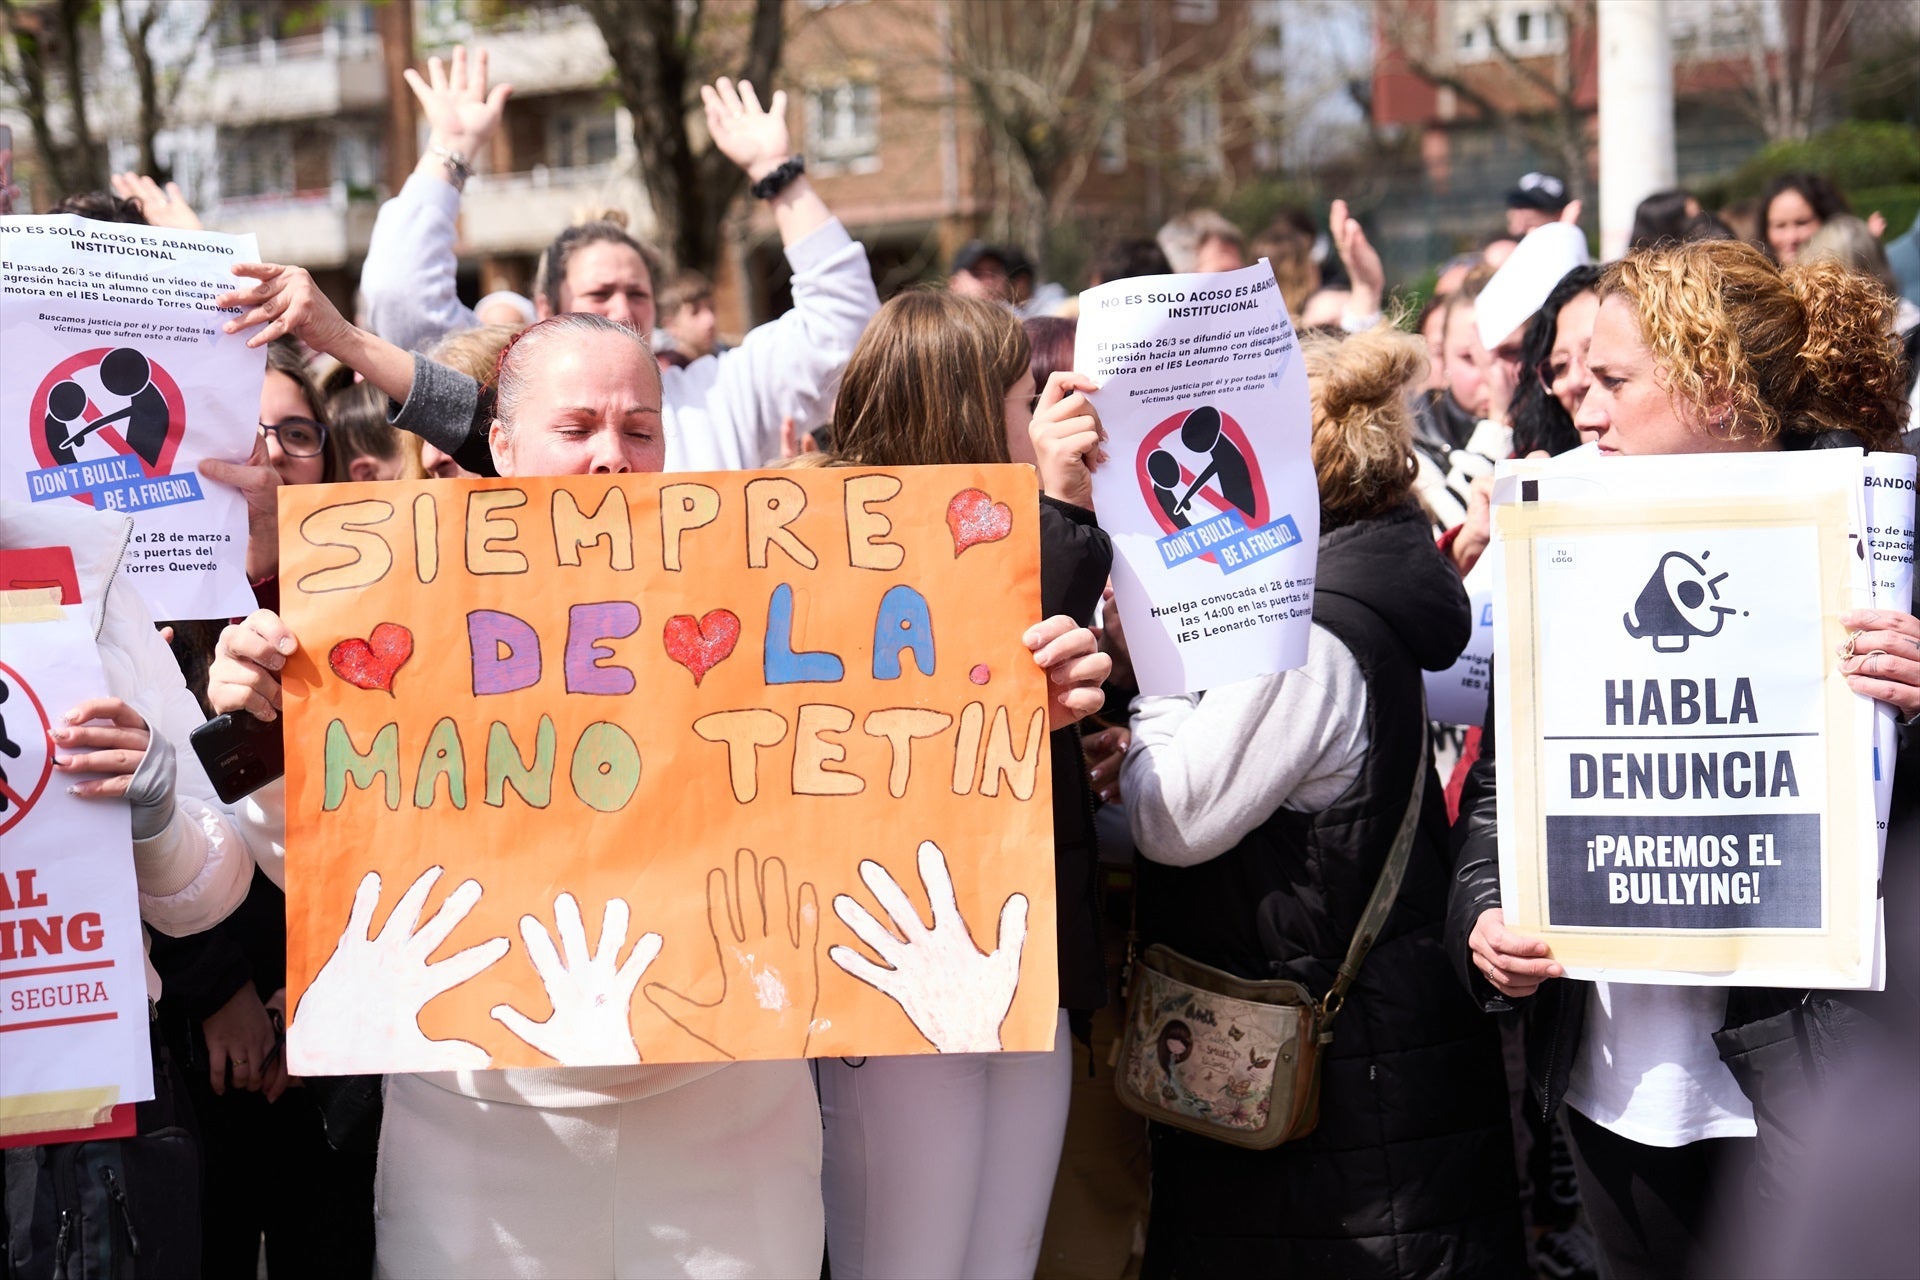 NO ES SOLO ACOSO ES ABANDONO
INSTITUCIONAL
El pasado 26/3 se difundió un vídeo de una
agresión hacia un alumno con discapac
motora en el IES Leonardo Torres Quevedo.
Buscamos justicia por él y por todas las
víctimas que sufren esto a diario
DON'T BULLY...
BE A FRIEND.
el 28 de marzo a
puertas del
Torres Quevedo
AL
ING
SEGURA
SIEMPRE
DE LA.
MANO TETÍN
NO ES SOLO ACOSO ES ABANDO
INSTITUCIONAL
El pasado 26/3 se difundió un vídeo de una
agresión hacia un alumno con discapacidad
motora en el IES Leonardo Torres Quevedo.
Buscamos justicia por él y por todas las
víctimas que sufren esto a diario
DON'T BULLY...
BE A FRIEND.
Huelga convocada el 28 de marzo
las 14:00 en las puertas del
IES Leonardo Torres Quevedo
TU
LOGO
HABLA
DENUNCIA
¡PAREMOS EL
BULLYING!
BANDON
eo de una
scapacid
Quevedo
las